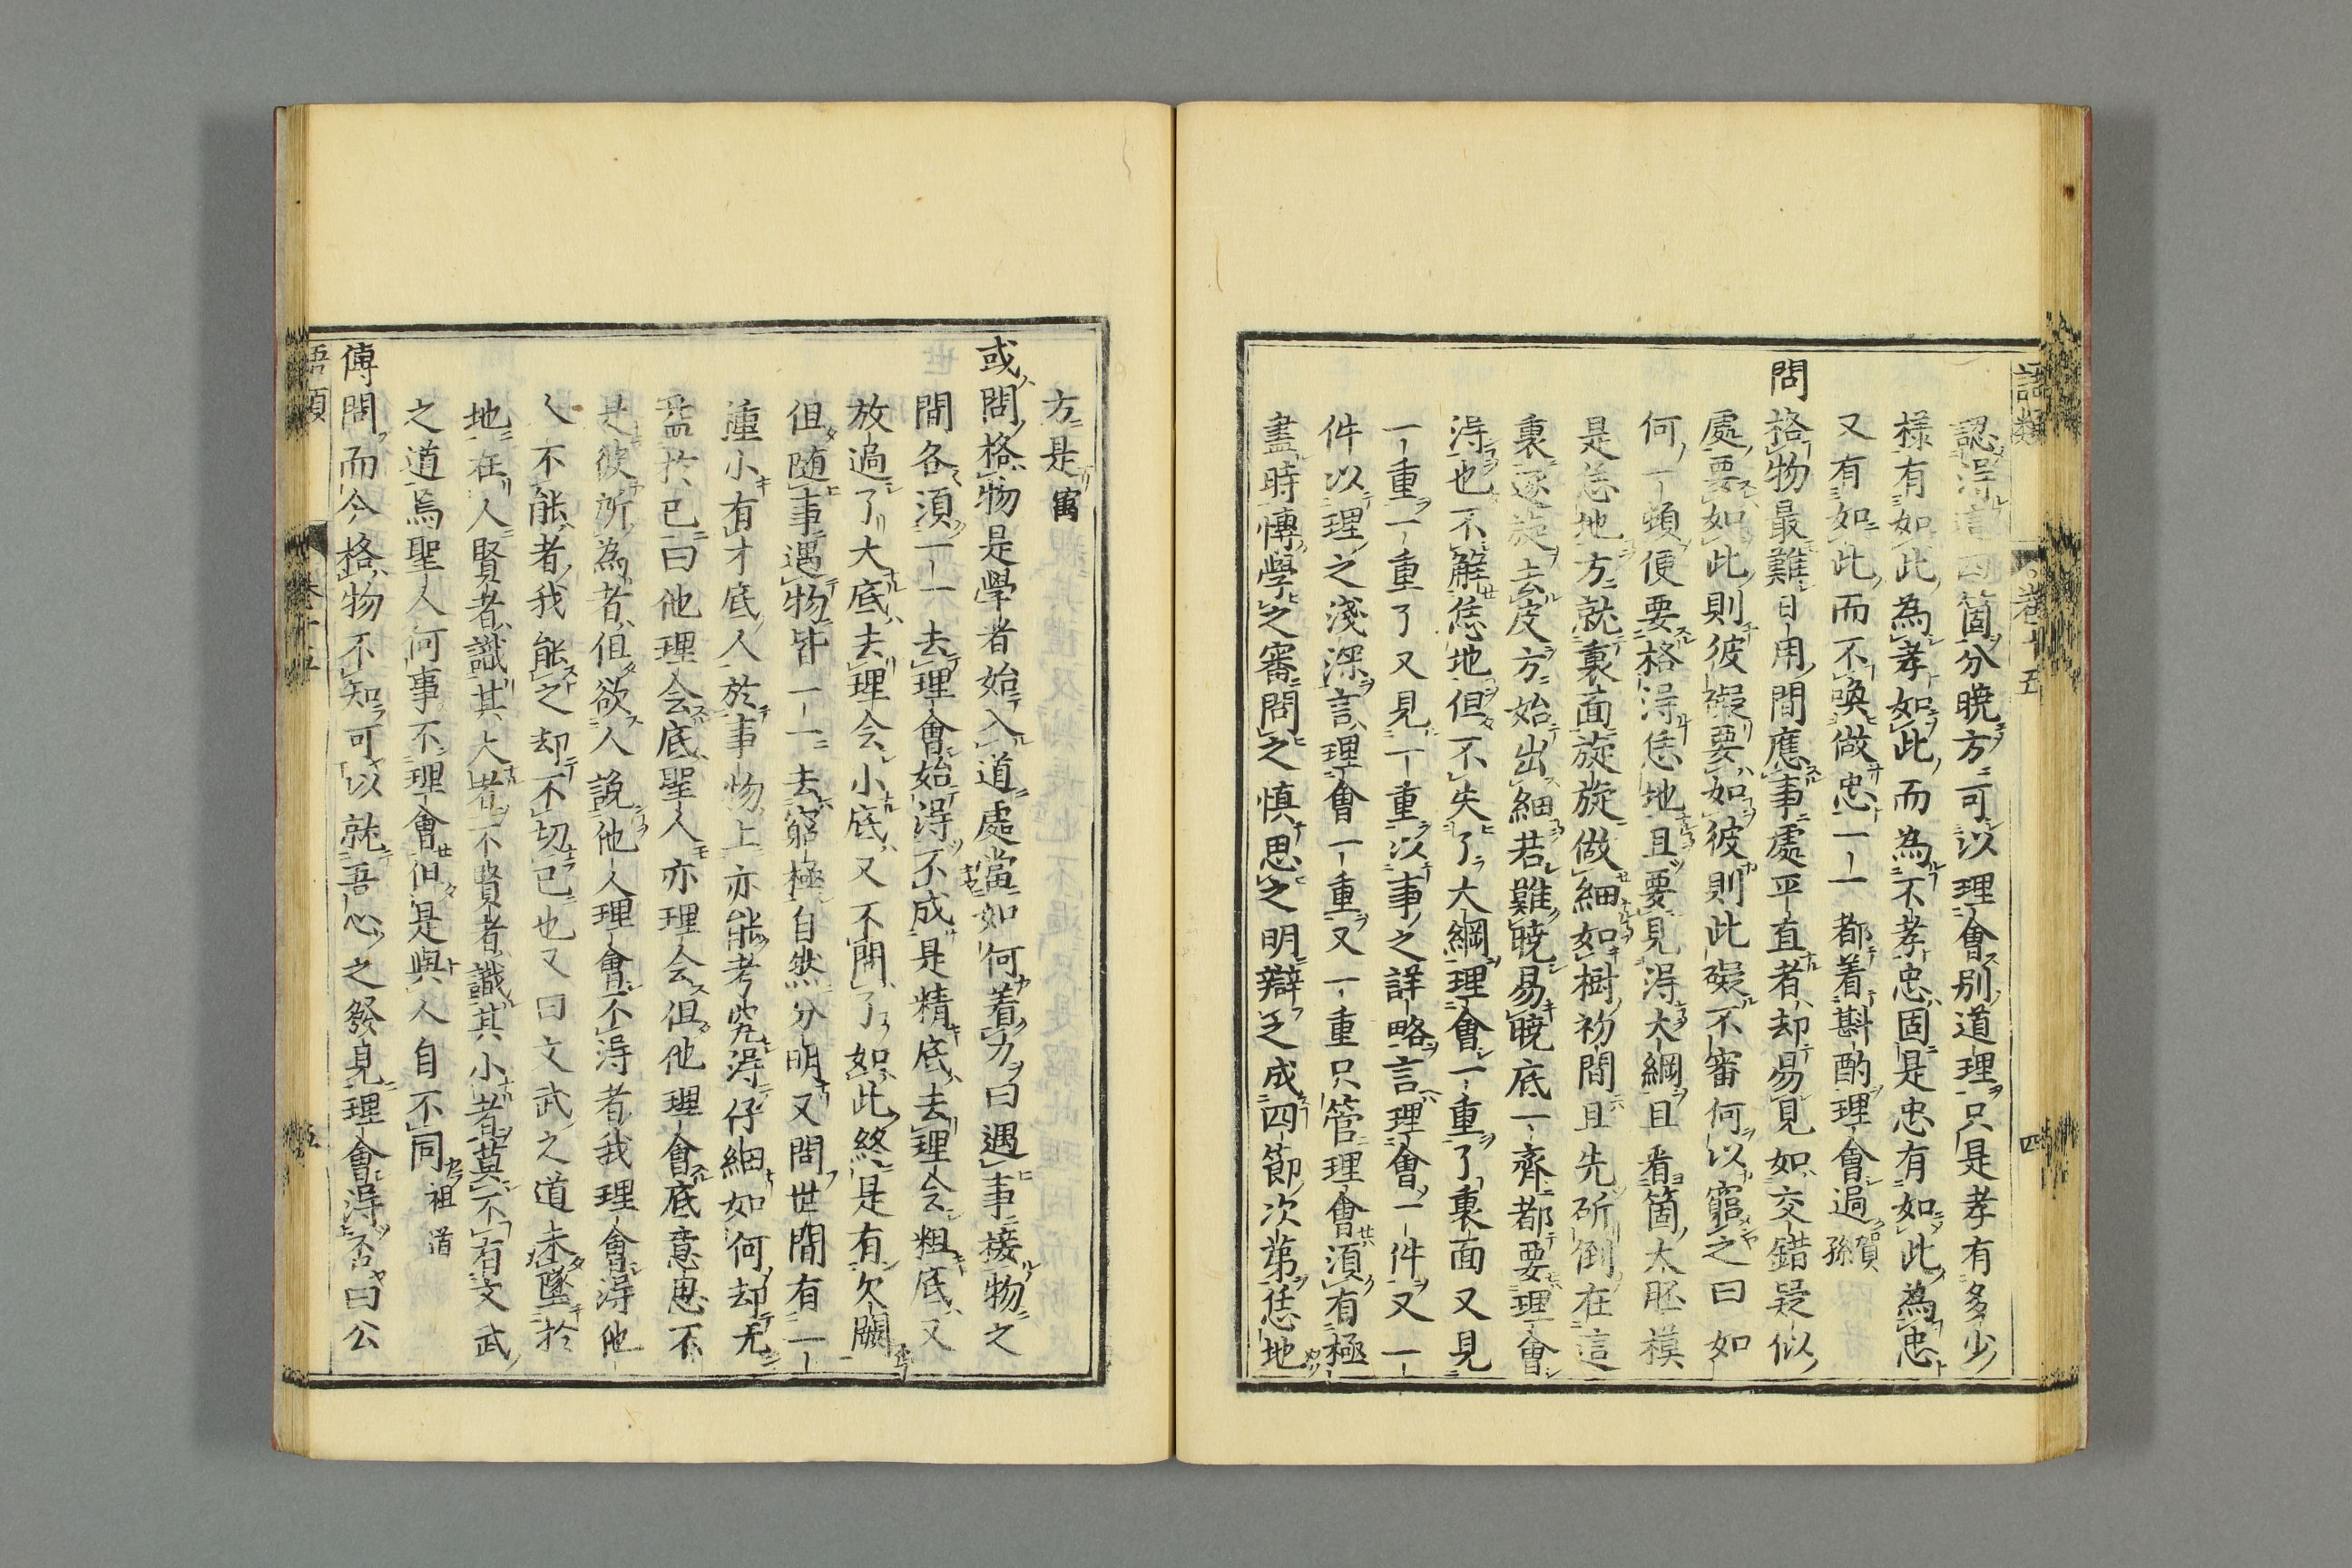 語類
卷十五
四
認得這四箇分曉方可以理會別道理只是孝有多少
様有如此為孝如此而為不孝忠固是忠有如此為忠
又有如此而不喚做忠一一都着斟酌理會過賀孫
問格物最難日用間應事處平直者却易見如交錯疑似
處要如此則彼礙要如彼則此礙不審何以窮之曰如
何一頓便要格得恁地且要見得大綱且看箇大胚模
是恁地方就裏面旋旋做細如樹初間且先斫倒在這
裏逐旋去皮方始出細若難曉易曉底一齊都要理會
得也不解恁地但不失了大綱理會一重了裏面又見
一重一重了又見一重以事之詳略言理會一件又一
件以理之淺深言理會一重又一重只管理會須有極
盡時博學之審問之慎思之明辯之成四節次第恁地
方是㝢
或問格物是學者始入道處當如何着力曰遇事接物之
間各須一一去理會始得不成是精底去理会粗底又
放過了大底去理会小底又不問了如此終是有欠闕
但随事遇物皆一一去窮極自然分明又問世間有一
種小有才底人於事物上亦能考究得仔細如何却无
益於已曰他理会底聖人亦理会但他理會底意思不
是彼所為者但欲人說他人理會不得者我理會得他
人不能者我能之却不切已也又曰文武之道未墜於
地在人賢者識其大者不賢者識其小者莫不有文武
之道焉聖人何事不理會但是與人自不同祖道
傳問而今格物不知可以就吾心之發見理會得否曰公
語類
卷十五
五